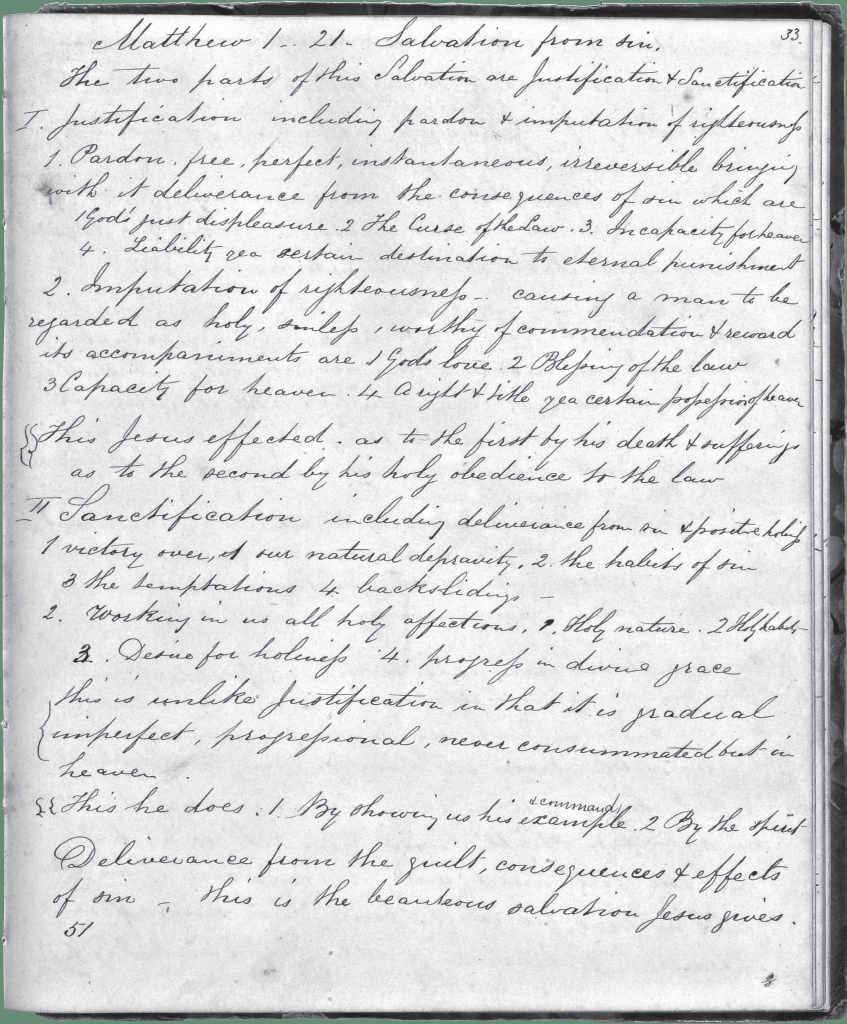 33.
Matthew 1 - 21 - Salvation from sin.
The two parts of this Salvation are Justification & Sanctification
I. Justification including pardon & imputation of righteousness
1. Pardon. free, perfect, instantaneous, irreversible bringing
with it deliverance from the consequences of sin which are
1 God's just displeasure. 2 The Curse of the Law. 3. Incapacity for heaven
4. Liability yea certain destination to eternal punishment
2. Imputation of righteousness - causing a man to be
regarded as holy, sinless, worthy of commendation & reward
its accompaniments are 1 God's love. 2 Blessing of the law
3 Capacity for heaven. 4. A right & title yea certain possession of heaven
This Jesus effected. as to the first by his death & sufferings
as to the second by his holy obedience to the law
II Sanctification including deliverance from sin & positive holiness
1 victory over, 1 our natural depravity. 2. the habits of sin
3 the temptations 4. backslidings -
2. Working in us all holy affections. 1. Holy nature. 2 Holy habits
3. Desire for holiness 4. progress in divine grace
this is unlike Justification in that it is gradual
imperfect, progressional, never consummated but in
heaven.
& command
This he does. 1. By showing us his example. 2 By the spirit
Deliverance from the guilt, consequences & effects
of sin - this is the beauteous salvation Jesus gives.
51